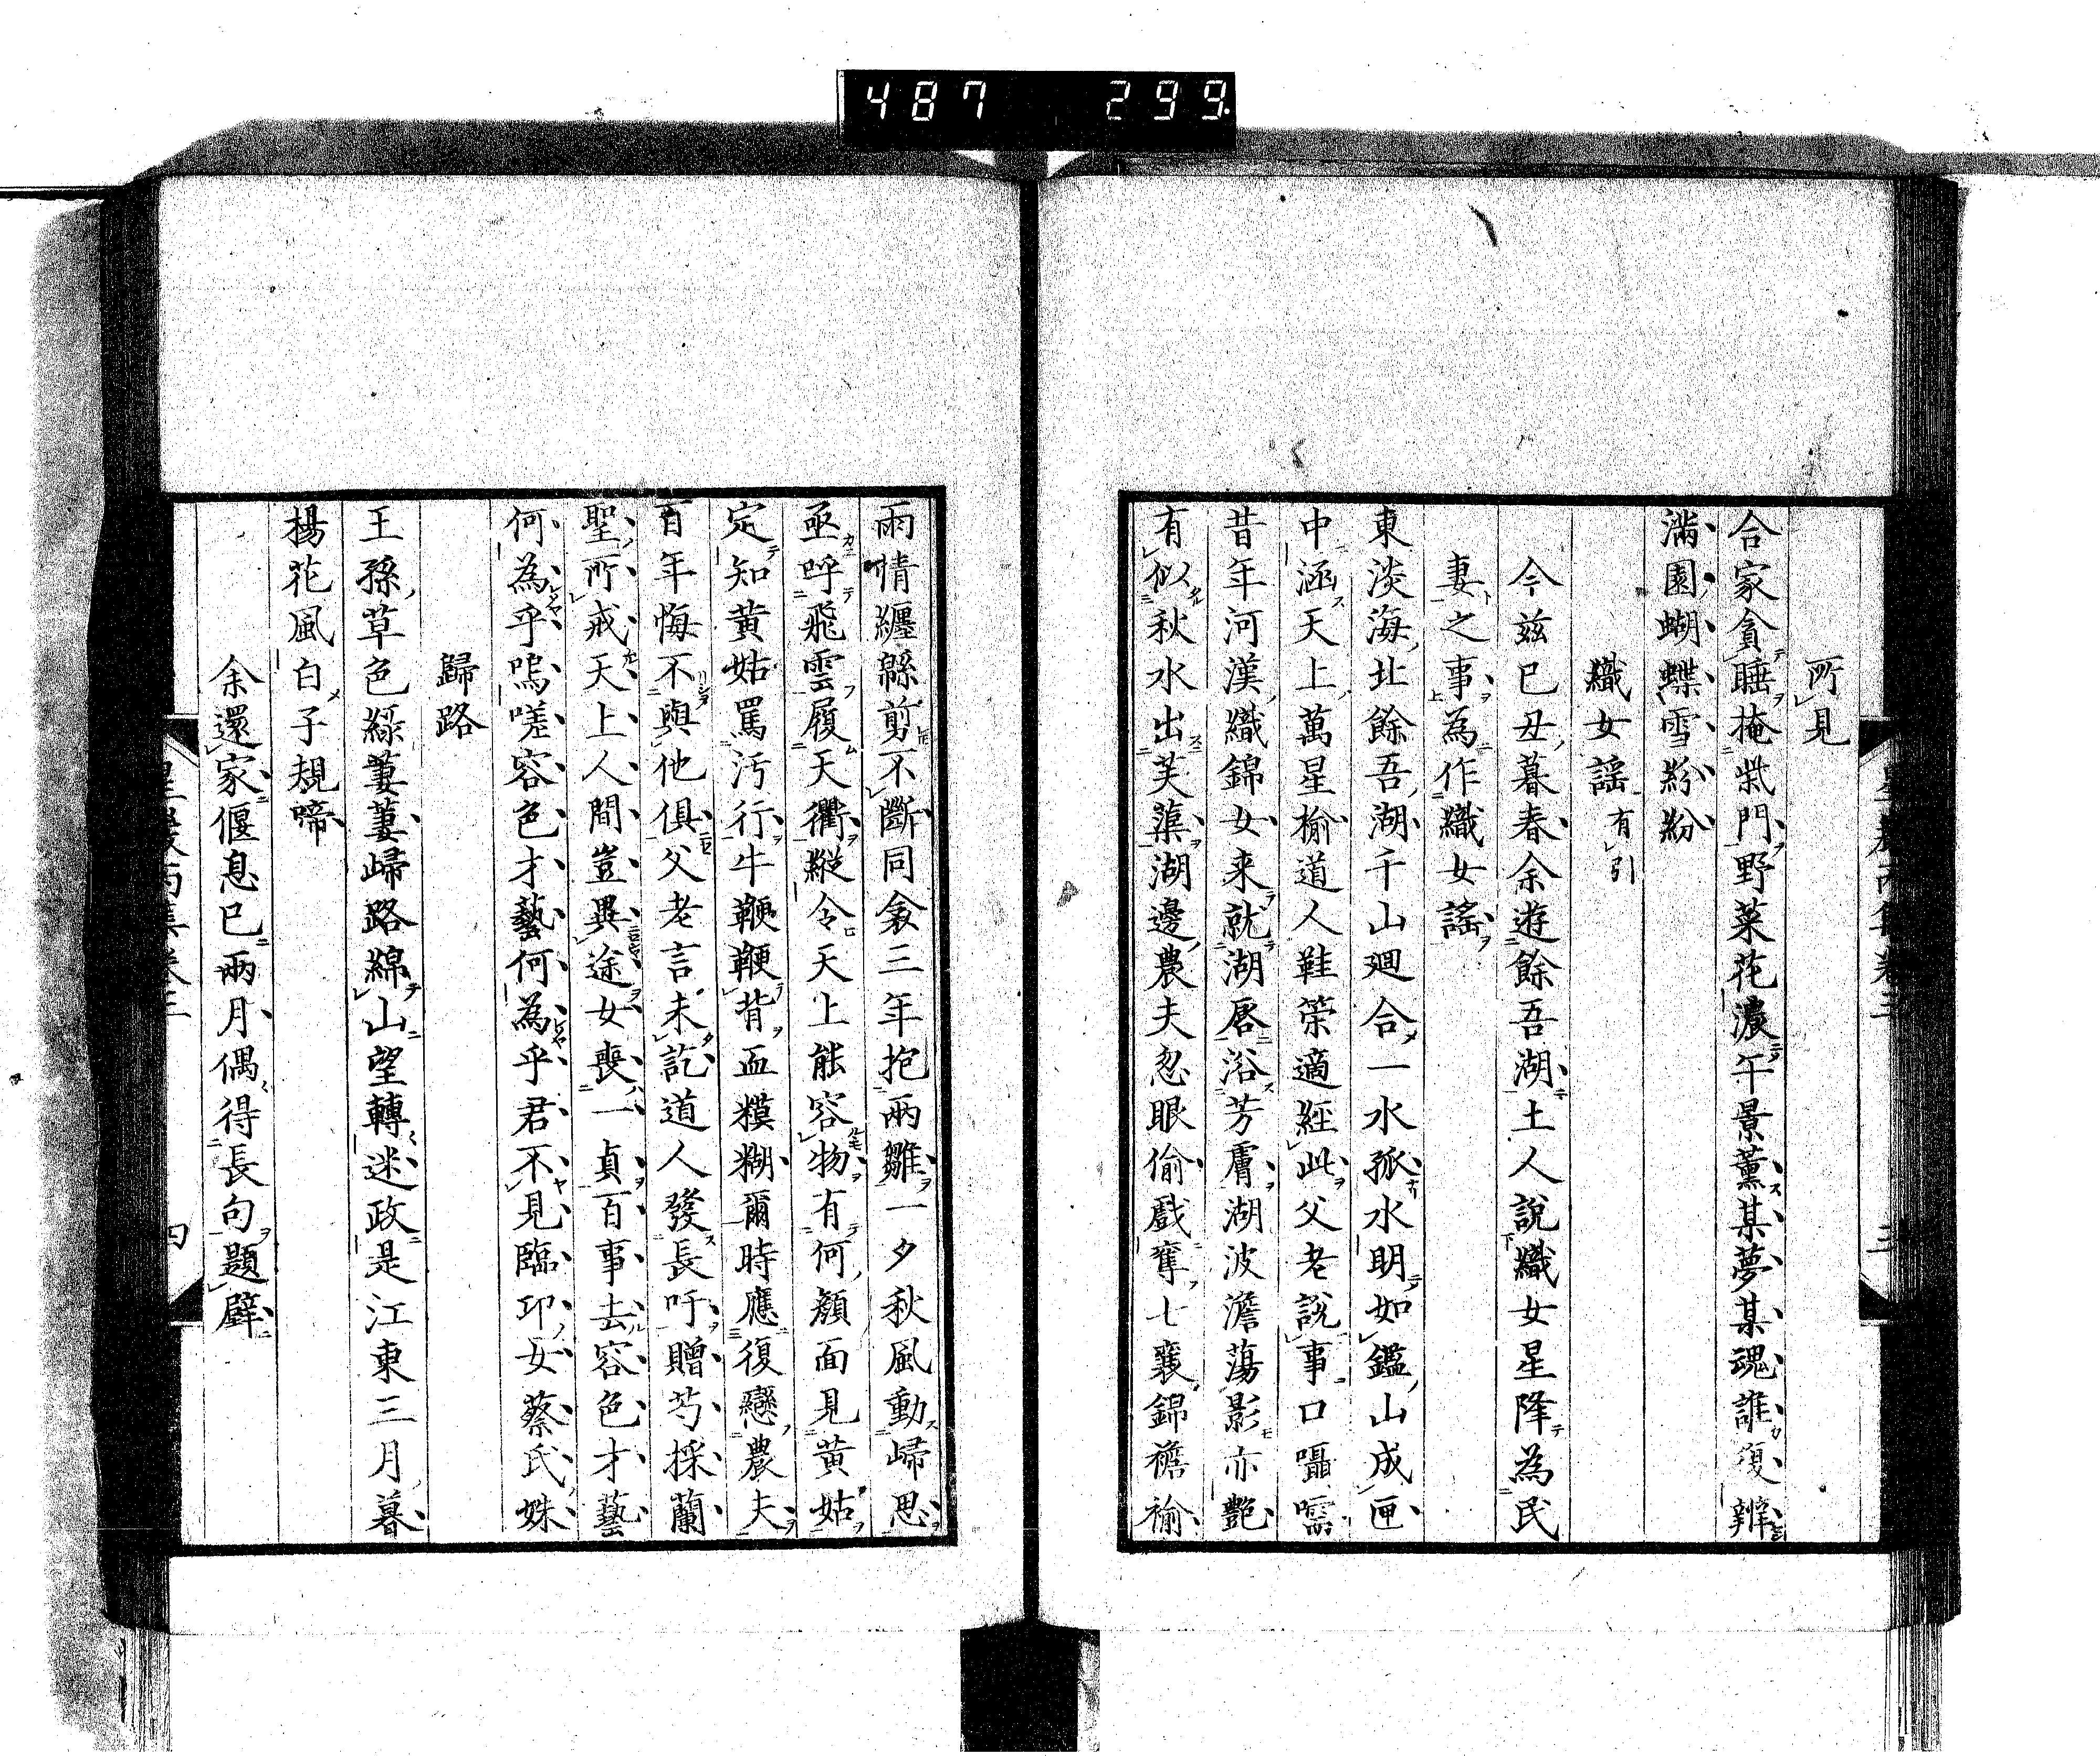 487 299
所見
合家貪睡掩柴門野菜花濃午景薰某夢某魂誰復辨
滿園蝴蝶雪紛紛
織女謠有引
今茲已丑暮春余遊餘吾湖土人說織女星降為民
妻之事為作織女謠
東淡海北餘吾湖千山廻合一水孤水明如鑑山成匣
中涵天上萬星榆道人鞋筇適經此父老說事口囁嚅
昔年河漢織錦女来就湖唇浴芳膚湖波澹蕩影亦艷
有似秋水出芙蕖湖邊農夫忍眼偷戲奪七襄錦襜褕
雨情纏緜剪不斷同衾三年抱兩雛一夕秋風動歸思
亟呼飛雲履天衢縱令天上能容物有何顏面見黃姑
定知黃姑罵汚行牛鞭鞭背血糢糊爾時應復戀農夫
百年悔不與他俱父老言未訖道人發長吁贈芍採蘭
聖所戒天上人間豈異途女喪一貞百事去容色才藝
何為乎嗚嗟容色才藝何為乎君不見臨邛女蔡氏姝
歸路
王孫草色綠萋萋歸路綿山望轉迷政是江東三月暮
楊花風白子規啼
余還家偃息已兩月偶得長句題壁
四
三